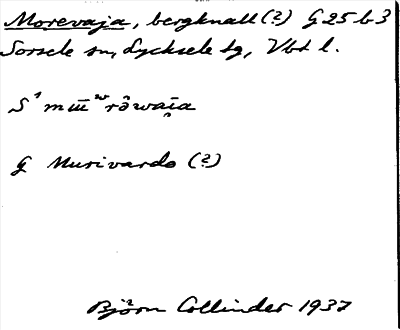 Morevaja, bergknall (?) G 25 b 3
Sorsele sn, Lycksele lg, Vbt l.
G Murivardo (?)
Björn Collinder 1937